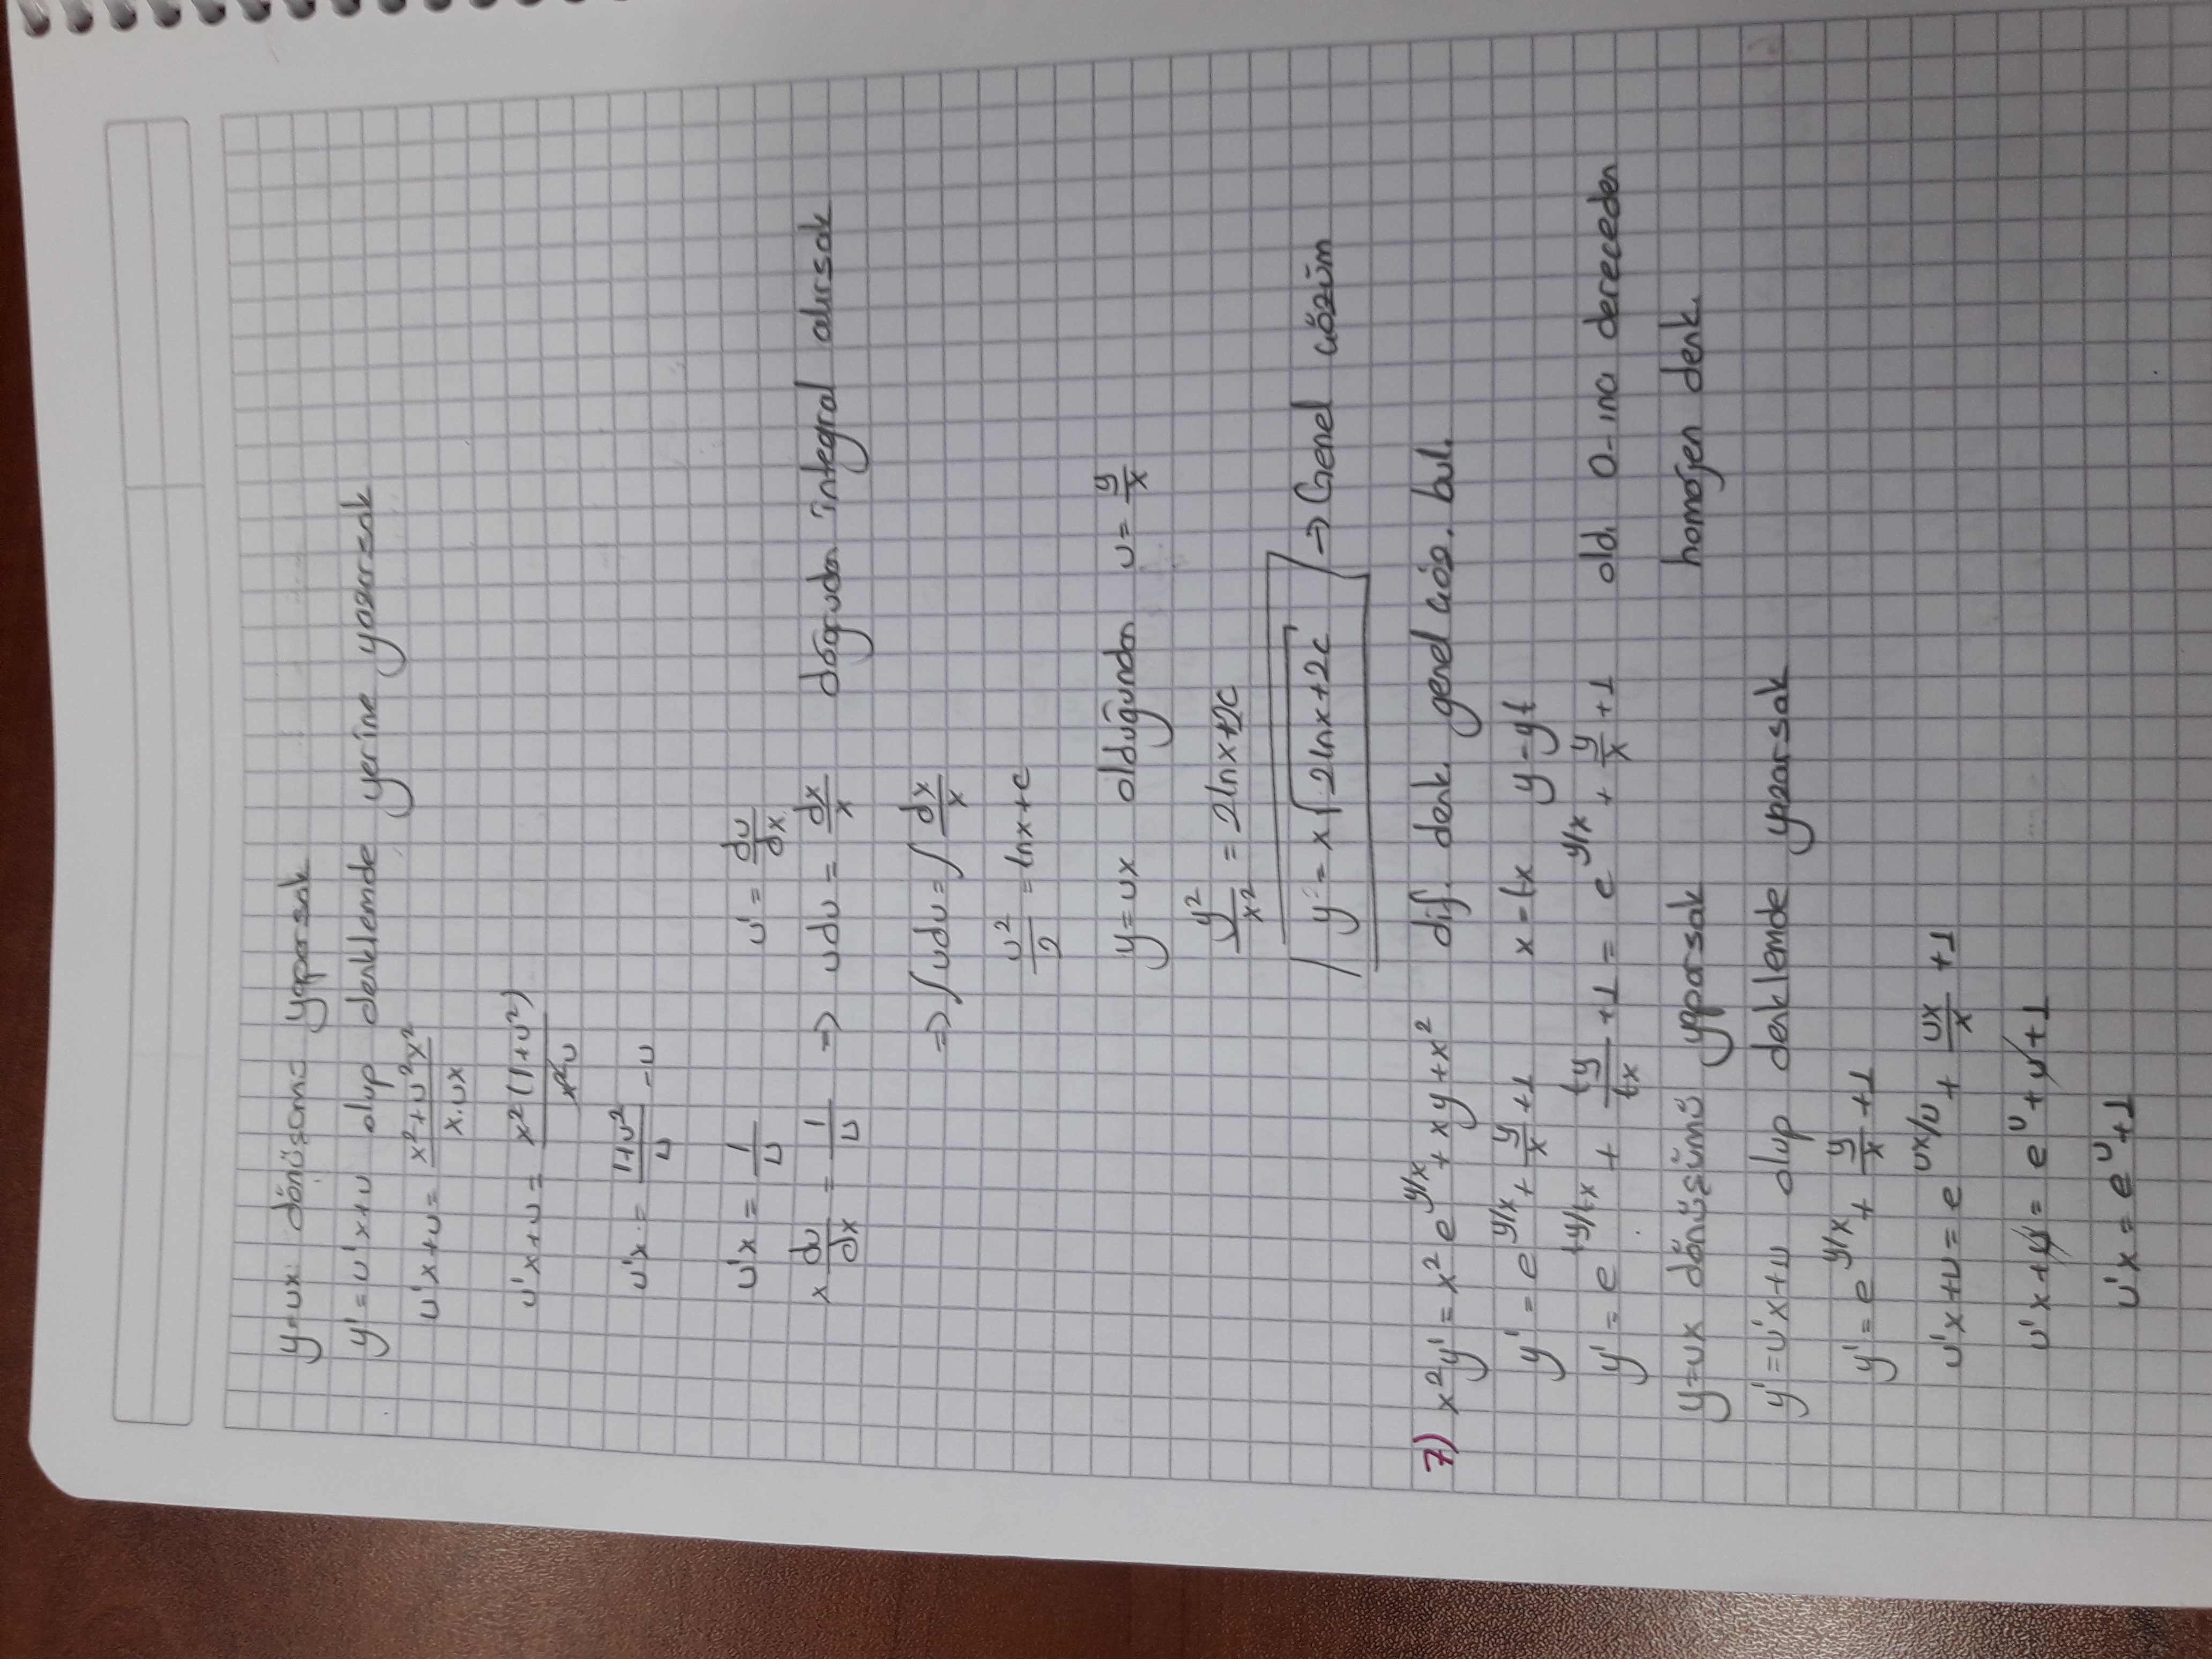 y=ux dönüşümü yaparsak
y'=u'x+u olup denklemde yerine yazarsak
u'x+u= (x²+u²x²)/(x.ux)
u'x+u= x²(1+u²)/(x²u)
u'x = (1+u²)/u -u
u'x = 1/u u' = du/dx
x du/dx = 1/u ⇒ udu = dx/x doğrudan integral alırsak
⇒ ∫udu=∫ dx/x
u²/2 = lnx+c
y=ux olduğundan u= y/x
y²/x² = 2lnx+2c
y = x√(2lnx+2c) → Genel çözüm
7) x²y' = x² e^(y/x) + xy+x² dif. denk. genel çöz. bul.
y' = e^(y/x) + y/x +1 x=tx y=yt
y' = e^(ty/tx) + ty/tx +1 = e^(y/x) + y/x +1 old. 0-ıncı dereceden
homojen denk.
y=ux dönüşümü yaparsak
y'=u'x+u olup denklemde yazarsak
y' = e^(y/x) + y/x +1
u'x+u = e^(ux/u) + ux/x +1
u'x+u = e^u+u+1
u'x = e^u+1